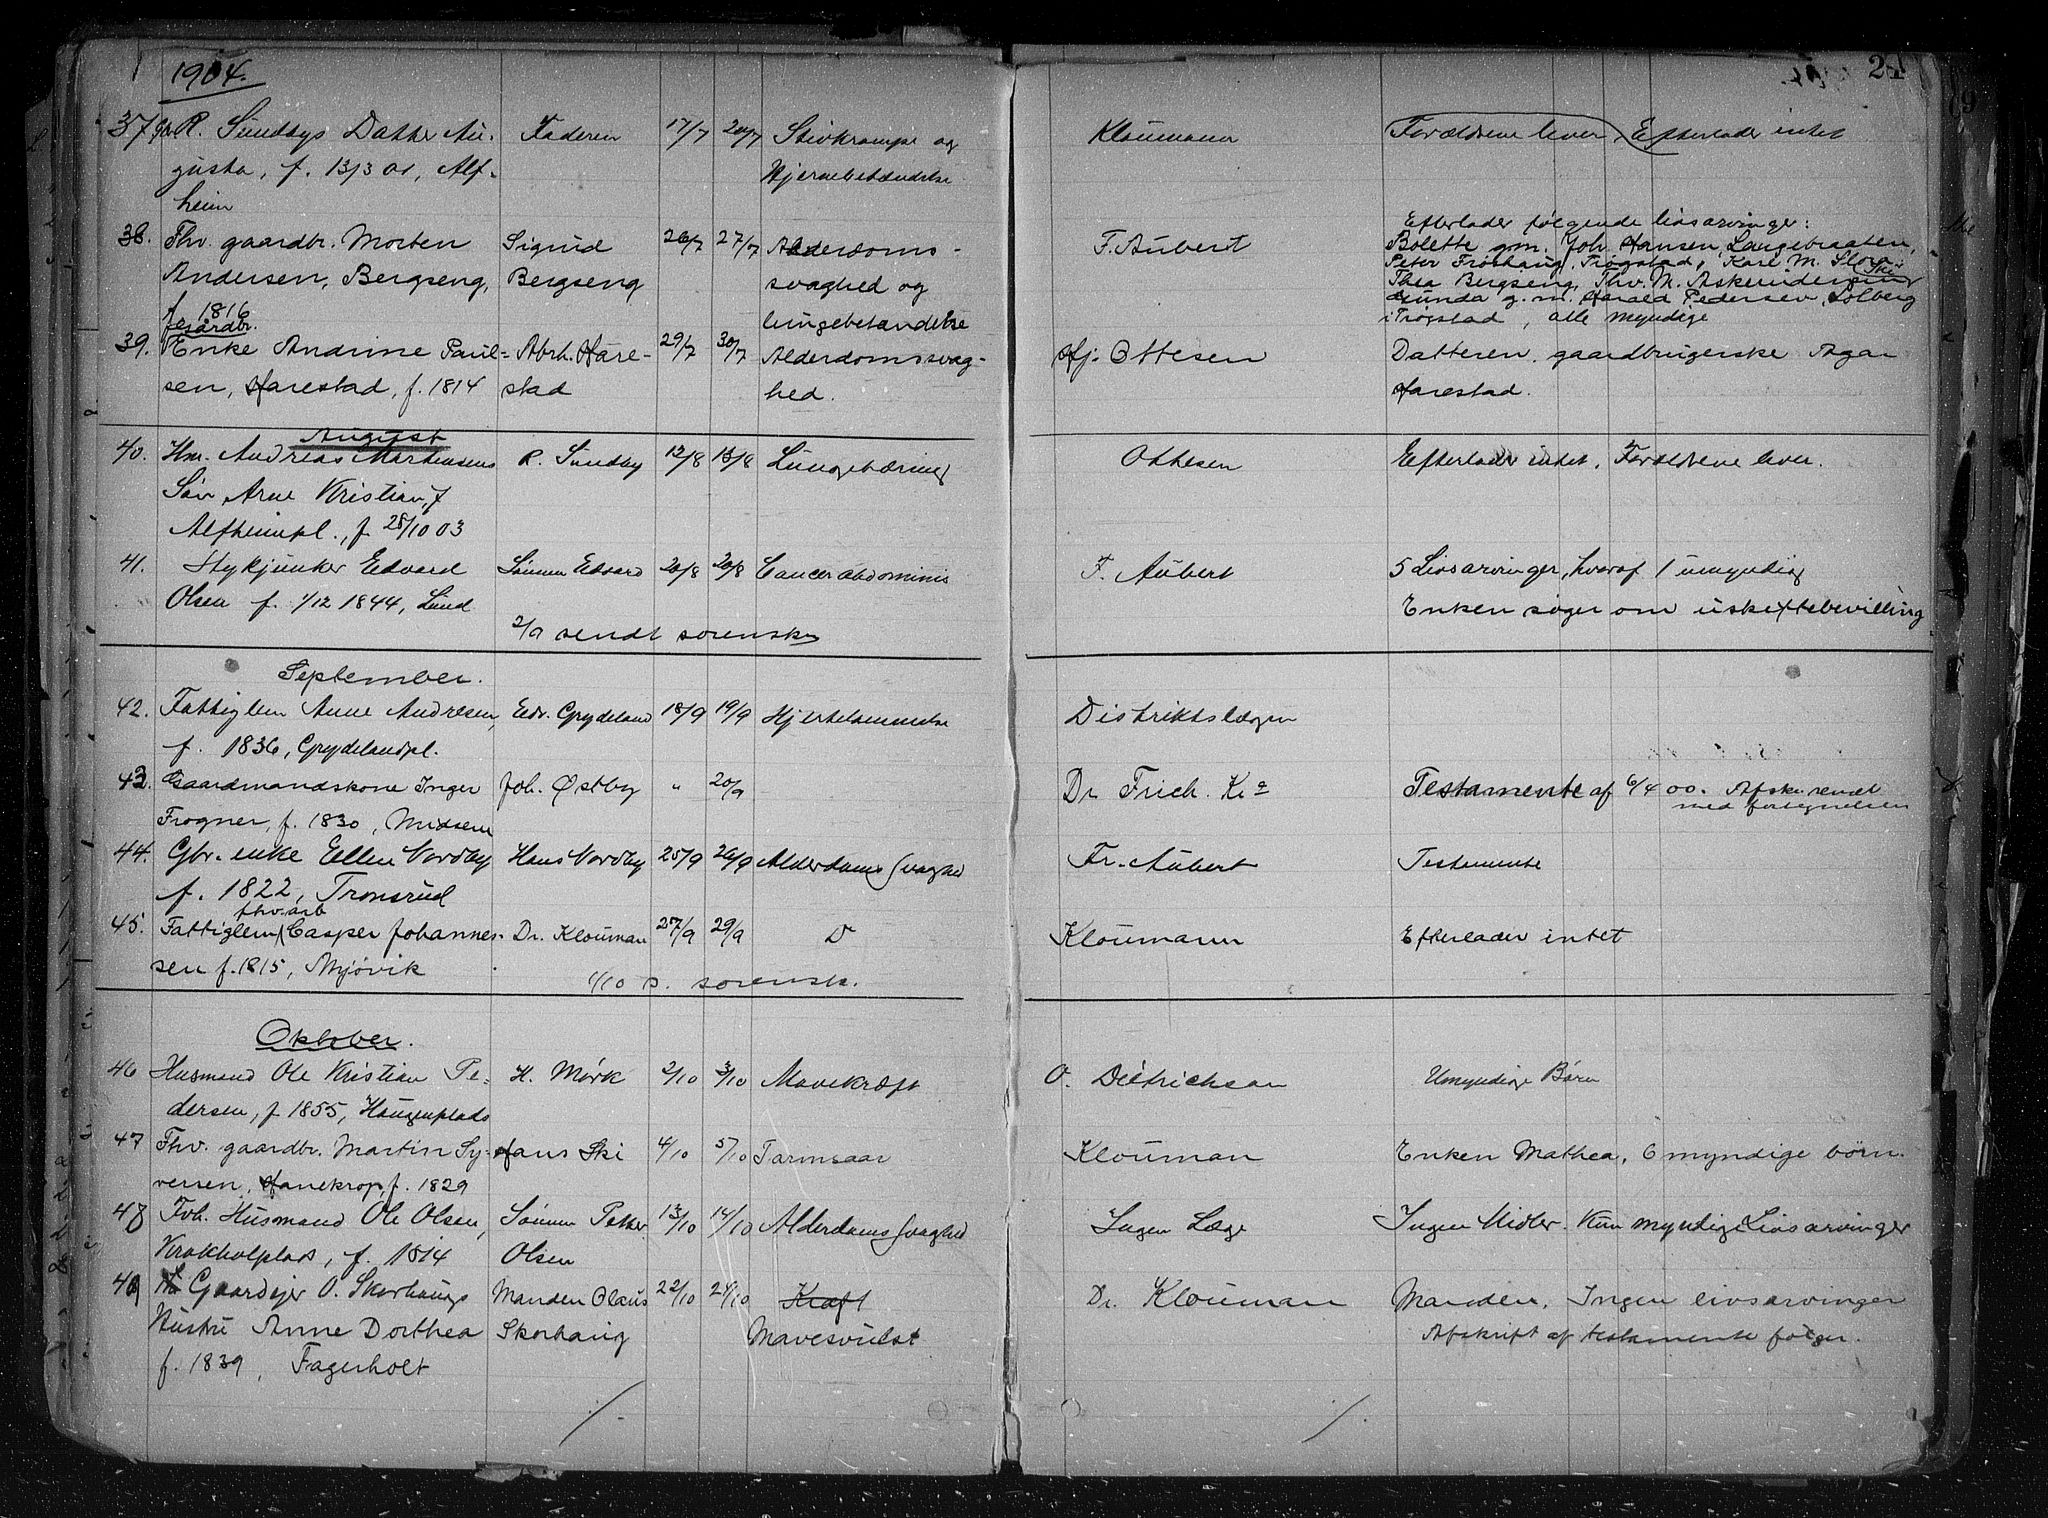 1904.
24
37 R. Sundbys Datter Au- Faderen 17/7 20/7 Stivkrampe og Kloumann Forældrene lever, Efterlader intet
gusta, f. 13/3 01, Alf- Hjernebetændelse
heim
38. Fhv. gaardbr. Morten Sigrud 26/7 27/7 Alderdoms- F. Aubert Efterlader følgende livsarvinger:
Andersen, Bergseng, Bergseng svaghed og Bolette g.m. Joh. Hansen Langebraaten,
f 1816 lungebetændelse Peter Frøshaug, Trøgstad, Karl M.
Thea Bergseng, Thv. M. Ski
g. m. Harald Pedersen, Solberg
i Trøgstad, alle myndige
39. gårdbr. Enke Andrine Paul- Abrh. Hare- 29/7 30/7 Alderdomssvag- Hj. Ottesen Datteren, gaardbrugerske
sen, Harestad, f. 1814 stad hed. Harestad.
August
40. Hm. Andreas Martensens R. Sundby 12/8 13/8 Ottesen Efterlader intet. Forældrene lever.
Søn Arne Kristian,
Alfheimpl., f. 28/10 03
41. Stykjunker Edvard Sønnen Edvard 20/8 20/8 Cancer abdominis F. Aubert 5 Livsarvinger, hvoraf 1 umyndig
Olsen f. 1/12 1844, Lund Enken søger om uskiftebevilling
2/9 sendt sorensk
September.
42. Fattiglem Anne Andresen, Edv. Grydeland 18/9 19/9 Hjertelammelse Distriktslægen
f. 1836, Grydelandpl.
43. Gaardmandskone Inger Joh. Østby " 20/9 Dr Frich. Kr.a Testamente af 6/4 00. Afskr. sendt
med fortegnelsen
Frogner, f. 1830,
44. Gbr. enke Ellen Nordby Hans Nordby 25/9 26/9 Alderdomssvaghed Fr. Aubert Testamente
f. 1822, Tronsrud
45. Fattiglem fhv. arb Casper Johannes- Dr. Klouman 27/9 29/9 D Kloumann Efterlader intet
sen f. 1815, Mjøvik
1/10 s. sorensk.
Oktober.
46 Husmand Ole Kristian Pe- H. Mørk 2/10 3/10 Mavekræft O. Dietrichson Umyndige Børn
dersen, f 1855, Haugenplads
47 Fhv. gaardbr. Martin Sy- Hans Ski 4/10 5/10 Tarmsaar Klouman Enken Mathea, 6 myndige børn.
versen, Hanekrop, f. 1829
48 Fvh. Husmand Ole Olsen, Sønnen Petter 13/10 14/10 Alderdomssvaghed Ingen Læge Ingen Midler. Kun myndige Livsarvinger
Krokholplads, f. 1814 Olsen
49 Gaardejer O. Skorhaugs Manden Olaus 22/10 24/10 Kraft Dr. Klouman Manden. Ingen livsarvinger
Hustru Anne Dorthea Skorhaug Mavesvulst Afskrift af testamente følger.
f. 1839, Fagerholt